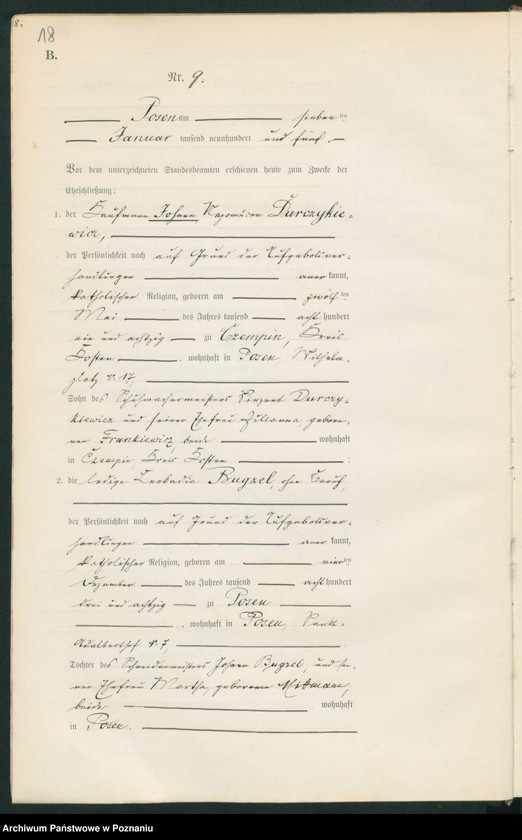 8.
18
B.
Nr. 9.
Posen am sieben ten
Januar tausend neunhundert und fünf.
Vor dem unterzeichneten Standesbeamten erschienen heute zum Zwecke der
Eheschließung:
1. der Kaufmann Johann Nepomucen Durczykie=
wicz,
der Persönlichkeit nach auf Grund der Aufgebotsver=
handlungen aner kannt,
katholischer Religion, geboren am zwölf ten
Mai des Jahres tausend acht hundert
ein und achtzig zu Czempin, Kreis
Kosten, wohnhaft in Posen, Wilhelm=
platz № 17,
Sohn des Schuhmachermeisters Vinzent Durczy=
kiewicz und seiner Ehefrau Julianna gebore=
nen Frankiewicz, beide wohnhaft
in Czempin, Kreis Kosten ;
2. die ledige Leokadia Bugzel, ohne Beruf,
der Persönlichkeit nach auf Grund der Aufgebotsver=
handlungen aner kannt,
katholischer Religion, geboren am vier ten
Dezember des Jahres tausend acht hundert
drei und achtzig zu Posen
, wohnhaft in Posen, Sankt=
Adalberthof № 7,
Tochter des Schneidermeisters Johann Bugzel, und sei=
ner Ehefrau Martha, geborenen
beide wohnhaft
in Posen.
Archiwum Państwowe w Poznaniu
Archiwum Państwowe w Poznaniu